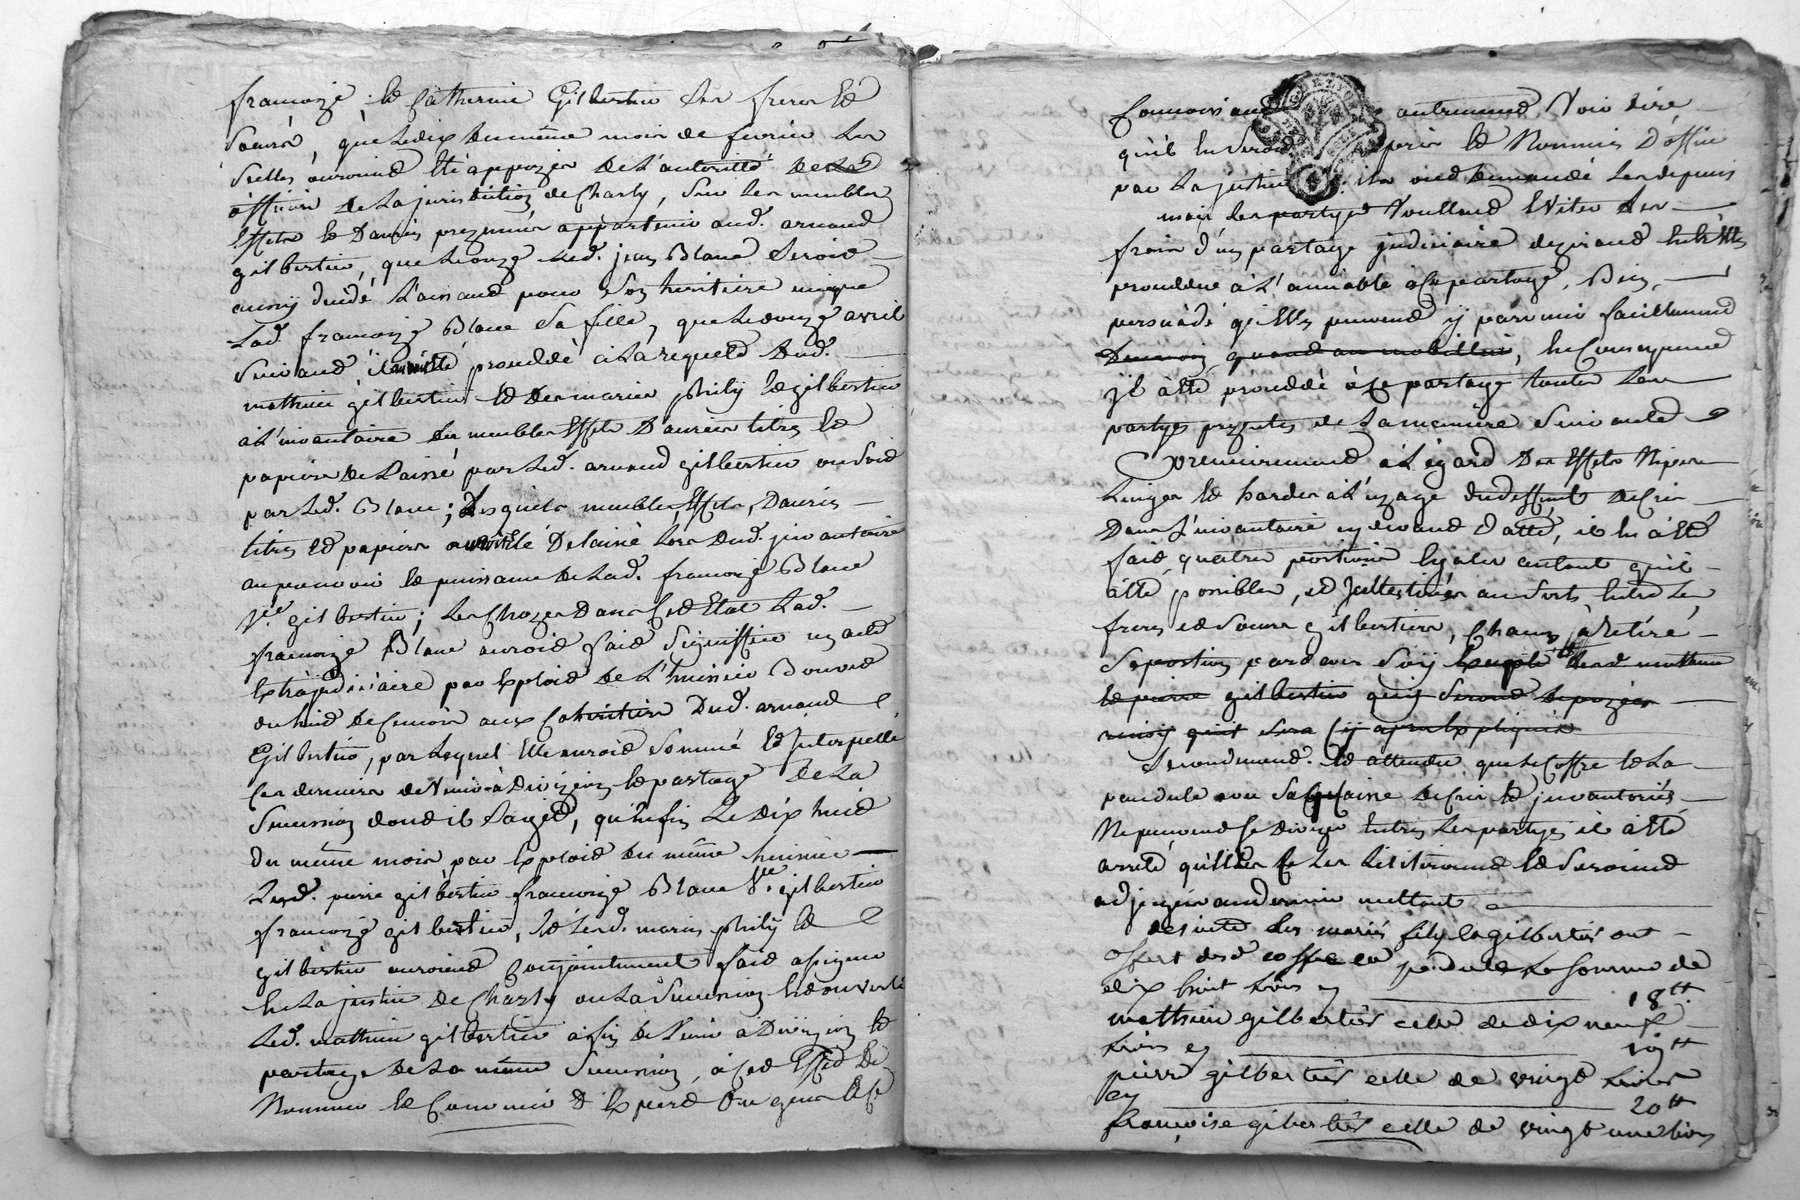 françoize, et Catherine Gilbertier ses freres et
soeurs, que le dix du même mois de fevrier les
scelles auroient eté appozés de l'autorité des
officiers de la jurisdiction de Charly, sur les meubles
Effets et Danrées prezumés appartenir aud. arnaud
gilbertier, que le onze led. jean Blanc seroit
aussy decedé laissant pour son heritiere unique
lad. françoize Blanc sa fille, que le douze avril
suivant il a été proceddé a la requete dud.
mathieu gilbertier et des mariés phily et gilbertier
a l'inventaire des meubles Effets Danrées titres et
papiers delaissé par led. arnaud gilbertier ou soit
par led. Blanc; Lesquels meubles, Effets, Danrées
titres et papiers ont été delaissé lors dud. inventaire
au pouvoir et puissance de lad. françoize Blanc
Ve. gilbertier; les chozes dans cet Etat lad.
françoize Blanc auroit fait signiffier un acte
Extrajudiciaire par Exploit de l'huissier Bouvet
du huit de ce mois aux Cohéritiers Dud. arnaud
Gilbertier, par lequel Elle auroit sommé et Interpellé
ces derniers de venir à Division et partage de la
succession dont il s'agit, qu'enfin Le Dix huit
du même mois par Exploit du même huissier
Led. pierre gilbertier françoize Blanc Ve. gilbertier
françoize gilbertier, et les d. mariés phily et
gilbertier auroient conjointement fait assigner
En la justice de Charly ou la succession est ouverte
Led. mathieu gilbertier afin de venir à Division et
partage de la même succession, à cet Effet de
Nommer et convenir d'Experts ou gens a ce
Connoissant autrement voir dire
qu'il en seroit pris et Nommés D'office
par la justice les depuis
mais les partyes voullant Eviter les
frais d'un partage judiciaire dezirant Entr'Elles
proceddér à l'amiable à ce partage, Bien
persuadé qu'Elles peuvent y parvenir facillement
Du moins quant au mobillier, En Consequence
il à été proceddé à ce partage toutes les
partyes prezentes de la maniere suivante
Premierement à L'égard Des Effets Nipes
Linges et hardes à L'uzage dud deffunt decrit
Dans l'inventaire cy devant datté, il en à été
fait quatre portions Egales autant qu'il
à été possible, et Jcelles tirées au sorts Entre les
freres et soeurs gilbertier, Chacun à Retiré
sa portion pardevers soy Excepté celles de mathieu
et pierre gilbertier qui seront depozées
ainsy qu'il sera cy aprés Expliqué
Secondement. Et attendu que le Coffre et la
pendule avec sa Caisse decrit et inventoriés
Ne peuvent se diviser Entre les partyes il à été
arreté qu'Elles se les liciteroient et seroient
adjugés au dernier mettant
de suitte Les mariés fily et gilbertier ont
offert desd coffre et pendule La somme de
dix huit livres cy 18tt
mathieu gilbertier celle de dix neuf
livres cy 19tt
pierre gilbertier celle de vingt livres
cy 20tt
françoise gilbertier celle de vingt une livres